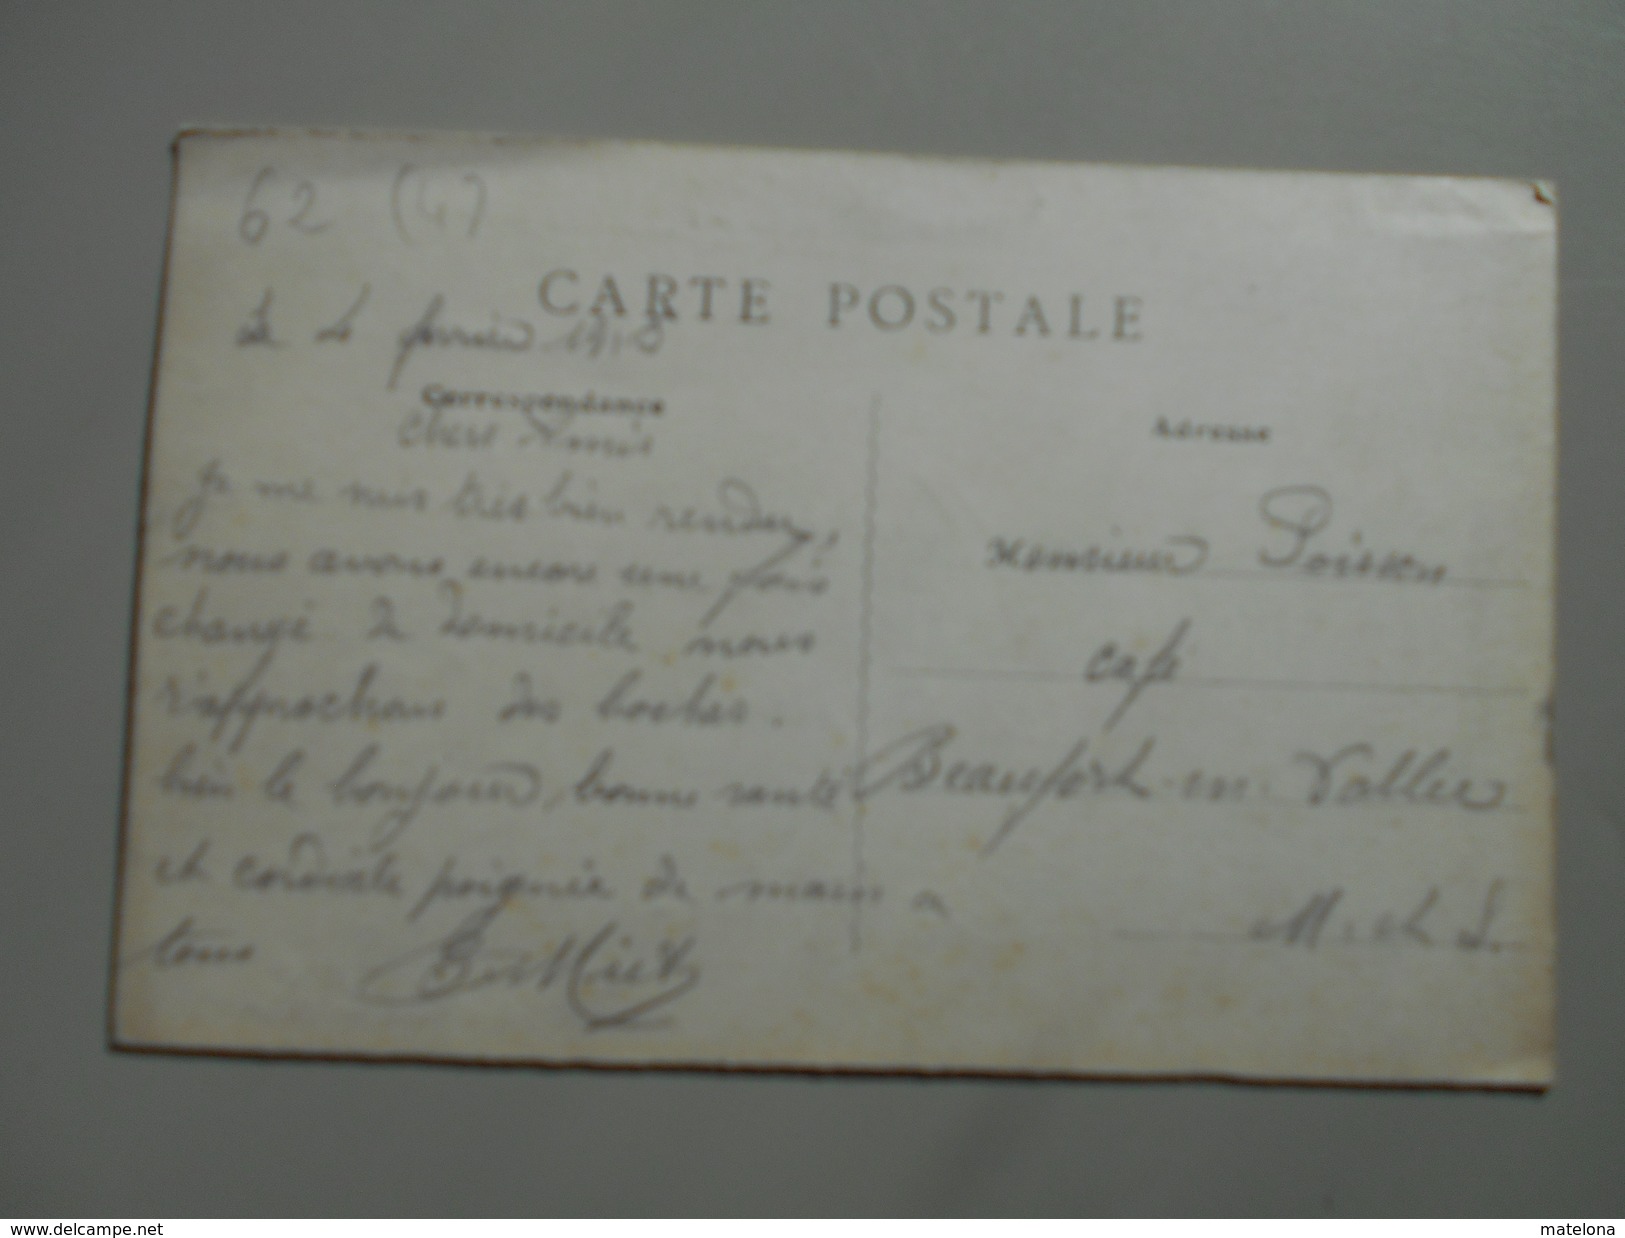 62 (4)
CARTE POSTALE
Le 4 février 1918
Correspondance
Chers Amis
Je me suis très bien rendu,
nous avons encore une fois
changé de domicile nous
rapprochons des boches.
bien le bonjour, bonne santé
et cordiale poignée de main a
tous
Adresse
Monsieur Poisson
café
Beaufort-en-Vallée
M. et L.
www.delcampe.net
matelona